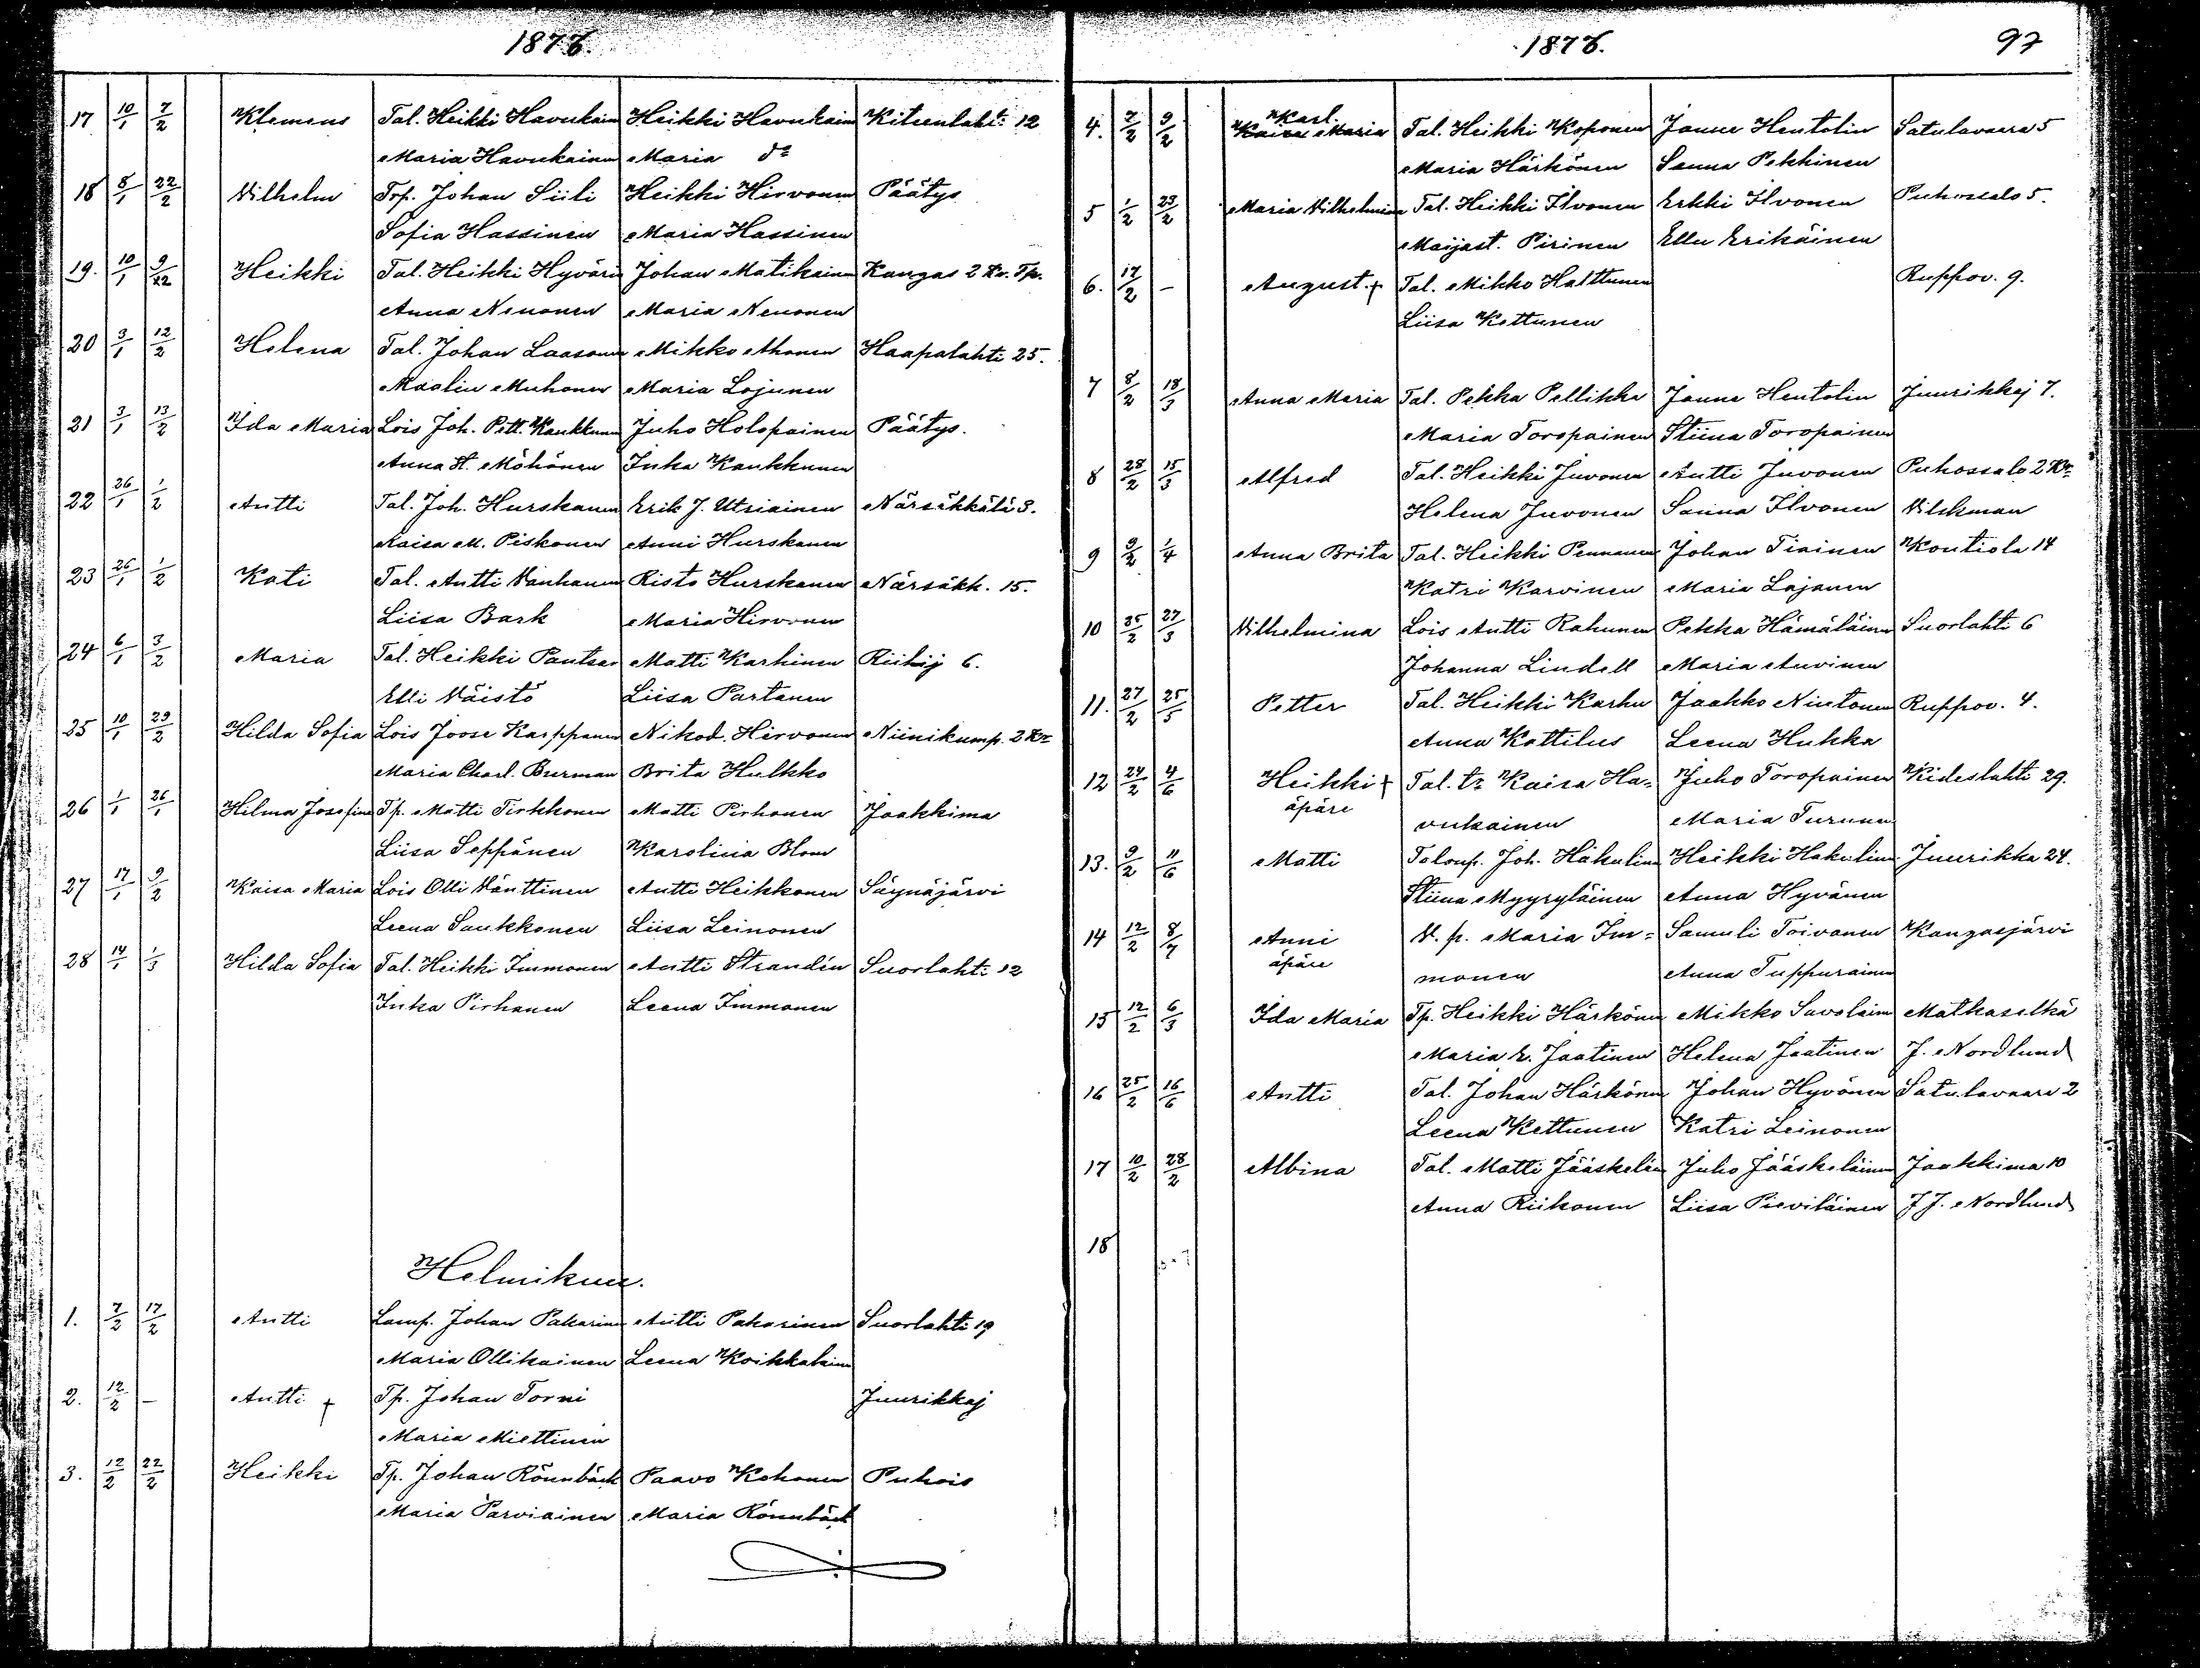 1878.
17 10/1 7/2 Klemens Tal. Heikki Havukain Heikki Havukain Kiteenlahti 12
Maria Havukainen Maria do
18 8/1 22/2 Vilhelm Trp. Johan Siili Heikki Hirvonen Päätys
Sofia Hassinen Maria Hassinen
19. 10/1 Heikki Tal. Heikki Hyvärin Johan Matikainen Kangas 2 Kr. Tp.
Anna Nenonen Maria Nenonen
20 3/1 12/2 Helena Tal. Johan Laasonen Mikko Ahonen Haapalahti 25.
Maalin Muhonen Maria Lojunen
21 3/1 13/2 Ida Maria Lois Joh. Pett. Kaukkunen Juho Holopainen Päätys.
Anna St. Möhönen Inka Kaukkunen
22 26/1 1/2 Antti Tal. Joh. Hurskanen Erik J. Utriainen Närsäkkälä 3.
Kaisa M. Piskonen Anni Hurskanen
23 26/1 1/2 Kati Tal. Antti Vanhanen Risto Hurskanen Närsäkk. 15.
Liisa Bark Maria Hirvonen
24 6/1 3/2 Maria Tal. Heikki Pantsar Matti Karhinen Riihij 6.
Elli Väistö Liisa Partanen
25 10/1 23/2 Hilda Sofia Lois Joose Karppanen Nikod. Hirvonen Niinikump. 2 Kr
Maria Charl. Burman Brita Hulkko
26 1/1 26/1 Hilma Josefina Tp. Matti Tirkkonen Matti Pirhonen Jaakkima
Liisa Seppänen Karolina Blom
27 17/1 9/2 Kaisa Maria Lois Olli Vänttinen Antti Heikkonen Säynäjärvi
Leena Saukkonen Liisa Leinonen
28 14/1 1/3 Hilda Sofia Tal. Heikki Immonen Antti Strandén Suorlahti 12
Inka Pirhonen Leena Immonen
Helmikuu.
1. 7/2 17/2 Antti Lamp. Johan Pakarinen Antti Pakarinen Suorlahti 19
Maria Ollikainen Leena Koikkalainen
2. 12/2 – Antti † Tp. Johan Torni Juurikkaj
Maria Miettinen
3. 12/2 22/2 Heikki Tp. Johan Rönnbäck Paavo Kohonen Puhois
Maria Parviainen Maria Rönnbäck
1878. 97
Karl.
4. 7/2 9/2 Kaisa Maria Tal. Heikki Koponen Janne Hentolin Satulavaara 5
Maria Härkönen Sanna Pekkinen
5 1/2 23/2 Maria Vilhelmina Tal. Heikki Ilvonen Erkki Ilvonen Puhossalo 5.
Maijast. Pirinen Ellu Erikäinen
6. 17/2 – August. † Tal. Mikko Halttunen Ruppov. 9.
Liisa Kettunen
7 8/2 18/3 Anna Maria Tal. Pekka Pellikka Janne Hentolin Juurikkaj 7.
Maria Toropainen Stiina Toropainen
8 28/2 15/3 Alfred Tal. Heikki Juvonen Antti Juvonen Puhossalo 2 Kr
Helena Juvonen Sanna Ilvonen Vilckman
9 9/2 1/4 Anna Brita Tal. Heikki Pennanen Johan Tiainen Kontiola 14
Katri Karvinen Maria Lajunen
10 25/2 27/3 Vilhelmina Lois Antti Rahunen Pekka Hämäläinen Suorlahti 6
Johanna Lindell Maria Auvinen
11. 27/2 25/5 Petter Tal. Heikki Karhu Jaakko Niutonen Ruppov. 4.
Anna Kattilus Leena Hukka
12 24/2 4/6 Heikki † Tal. tr Kaisa Ha= Juho Toropainen Kideslahti 29.
äpäre vukainen Maria Turunen
13. 9/2 11/6 Matti Talonp. Joh. Hakulinen Heikki Hakulinen Juurikka 24.
Stiina Myyryläinen Anna Hyvönen
14 12/2 8/7 Anni V. p. Maria Im= Samuli Toivanen Kangasjärvi
äpäre monen Anna Tuppurainen
15 12/2 6/3 Ida Maria Tp. Heikki Härkönen Mikko Savolainen Matkaselkä
Maria E. Jaatinen Helena Jaatinen J. Nordlund
16 25/2 16/6 Antti Tal. Johan Härkönen Johan Hyvönen Satulavaara 2
Leena Kettunen Katri Leinonen
17 10/2 28/2 Albina Tal. Matti Jääskeläin Juho Jääskeläinen Jaakkima 10
Anna Riikonen Liisa Pieviläinen J J. Nordlund
18